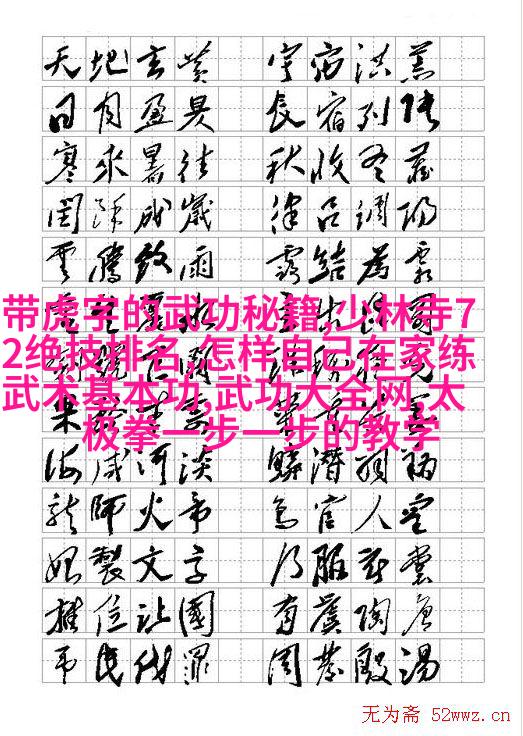 天地玄黄 宇宙洪荒
日月盈昃 辰宿列張
寒來暑往 秋收冬藏
閏餘成歲 律呂調陽
雲騰致雨 露結為霜
带虎字的武功秘籍,少林寺7
2绝技排名,怎样自己在家练
武术基本功,武功大全网,太
极拳一步一步的教学
海咸河淡 鱗潛羽翔
龍師火帝 鳥官人皇
始製文字 乃服衣裳
推位让國 有虞陶唐
弔民伐罪 周發殷湯
无为斋 52wwz.cn